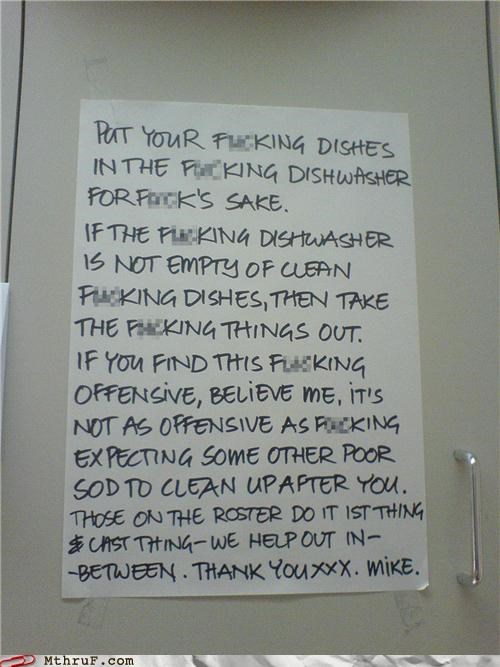 PUT YOUR F**KING DISHES
IN THE F**KING DISHWASHER
FOR F**K'S SAKE.
IF THE F**KING DISHWASHER
IS NOT EMPTY OF CLEAN
F**KING DISHES, THEN TAKE
THE F**KING THINGS OUT.
IF YOU FIND THIS F**KING
OFFENSIVE, BELIEVE ME, IT'S
NOT AS OFFENSIVE AS F**KING
EXPECTING SOME OTHER POOR
SOD TO CLEAN UP AFTER YOU.
THOSE ON THE ROSTER DO IT 1ST THING
& LAST THING - WE HELP OUT IN-
-BETWEEN. THANK YOU XXX. MIKE.
MthruF.com